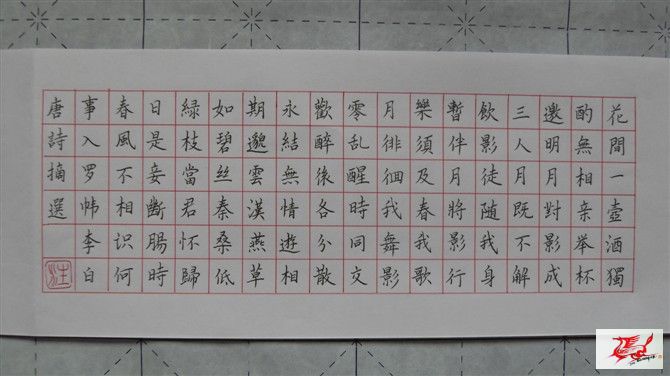 花間一壺酒獨
酌無相亲举杯
邀明月對影成
三人月既不解
飲影徒随我身
暫伴月將影行
樂須及春我歌
月徘徊我舞影
零乱醒時同交
歡醉後各分散
永結無情遊相
期邈雲漢燕草
如碧丝秦桑低
緑枝當君怀歸
日是妾斷腸時
春風不相识何
事入罗帏李白
唐詩摘選